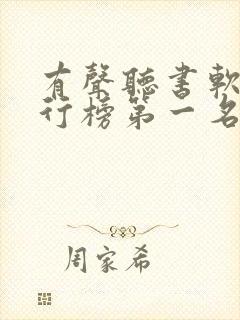 有聲聽書軟
行榜第一名
周家希